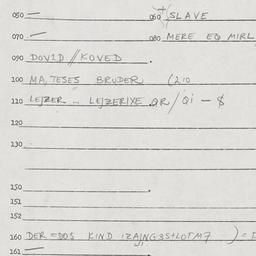 050 — 060 SLAVE
070 — 080 MERE EQ MIRL
090 DOVID // KOVED.
100 MA, TESES BRUDER (210
110 LEJZER .. LEJZERIXE QR / QI — $
120
130
150
151
152
160 DER = DOS KIND ) =
161 —